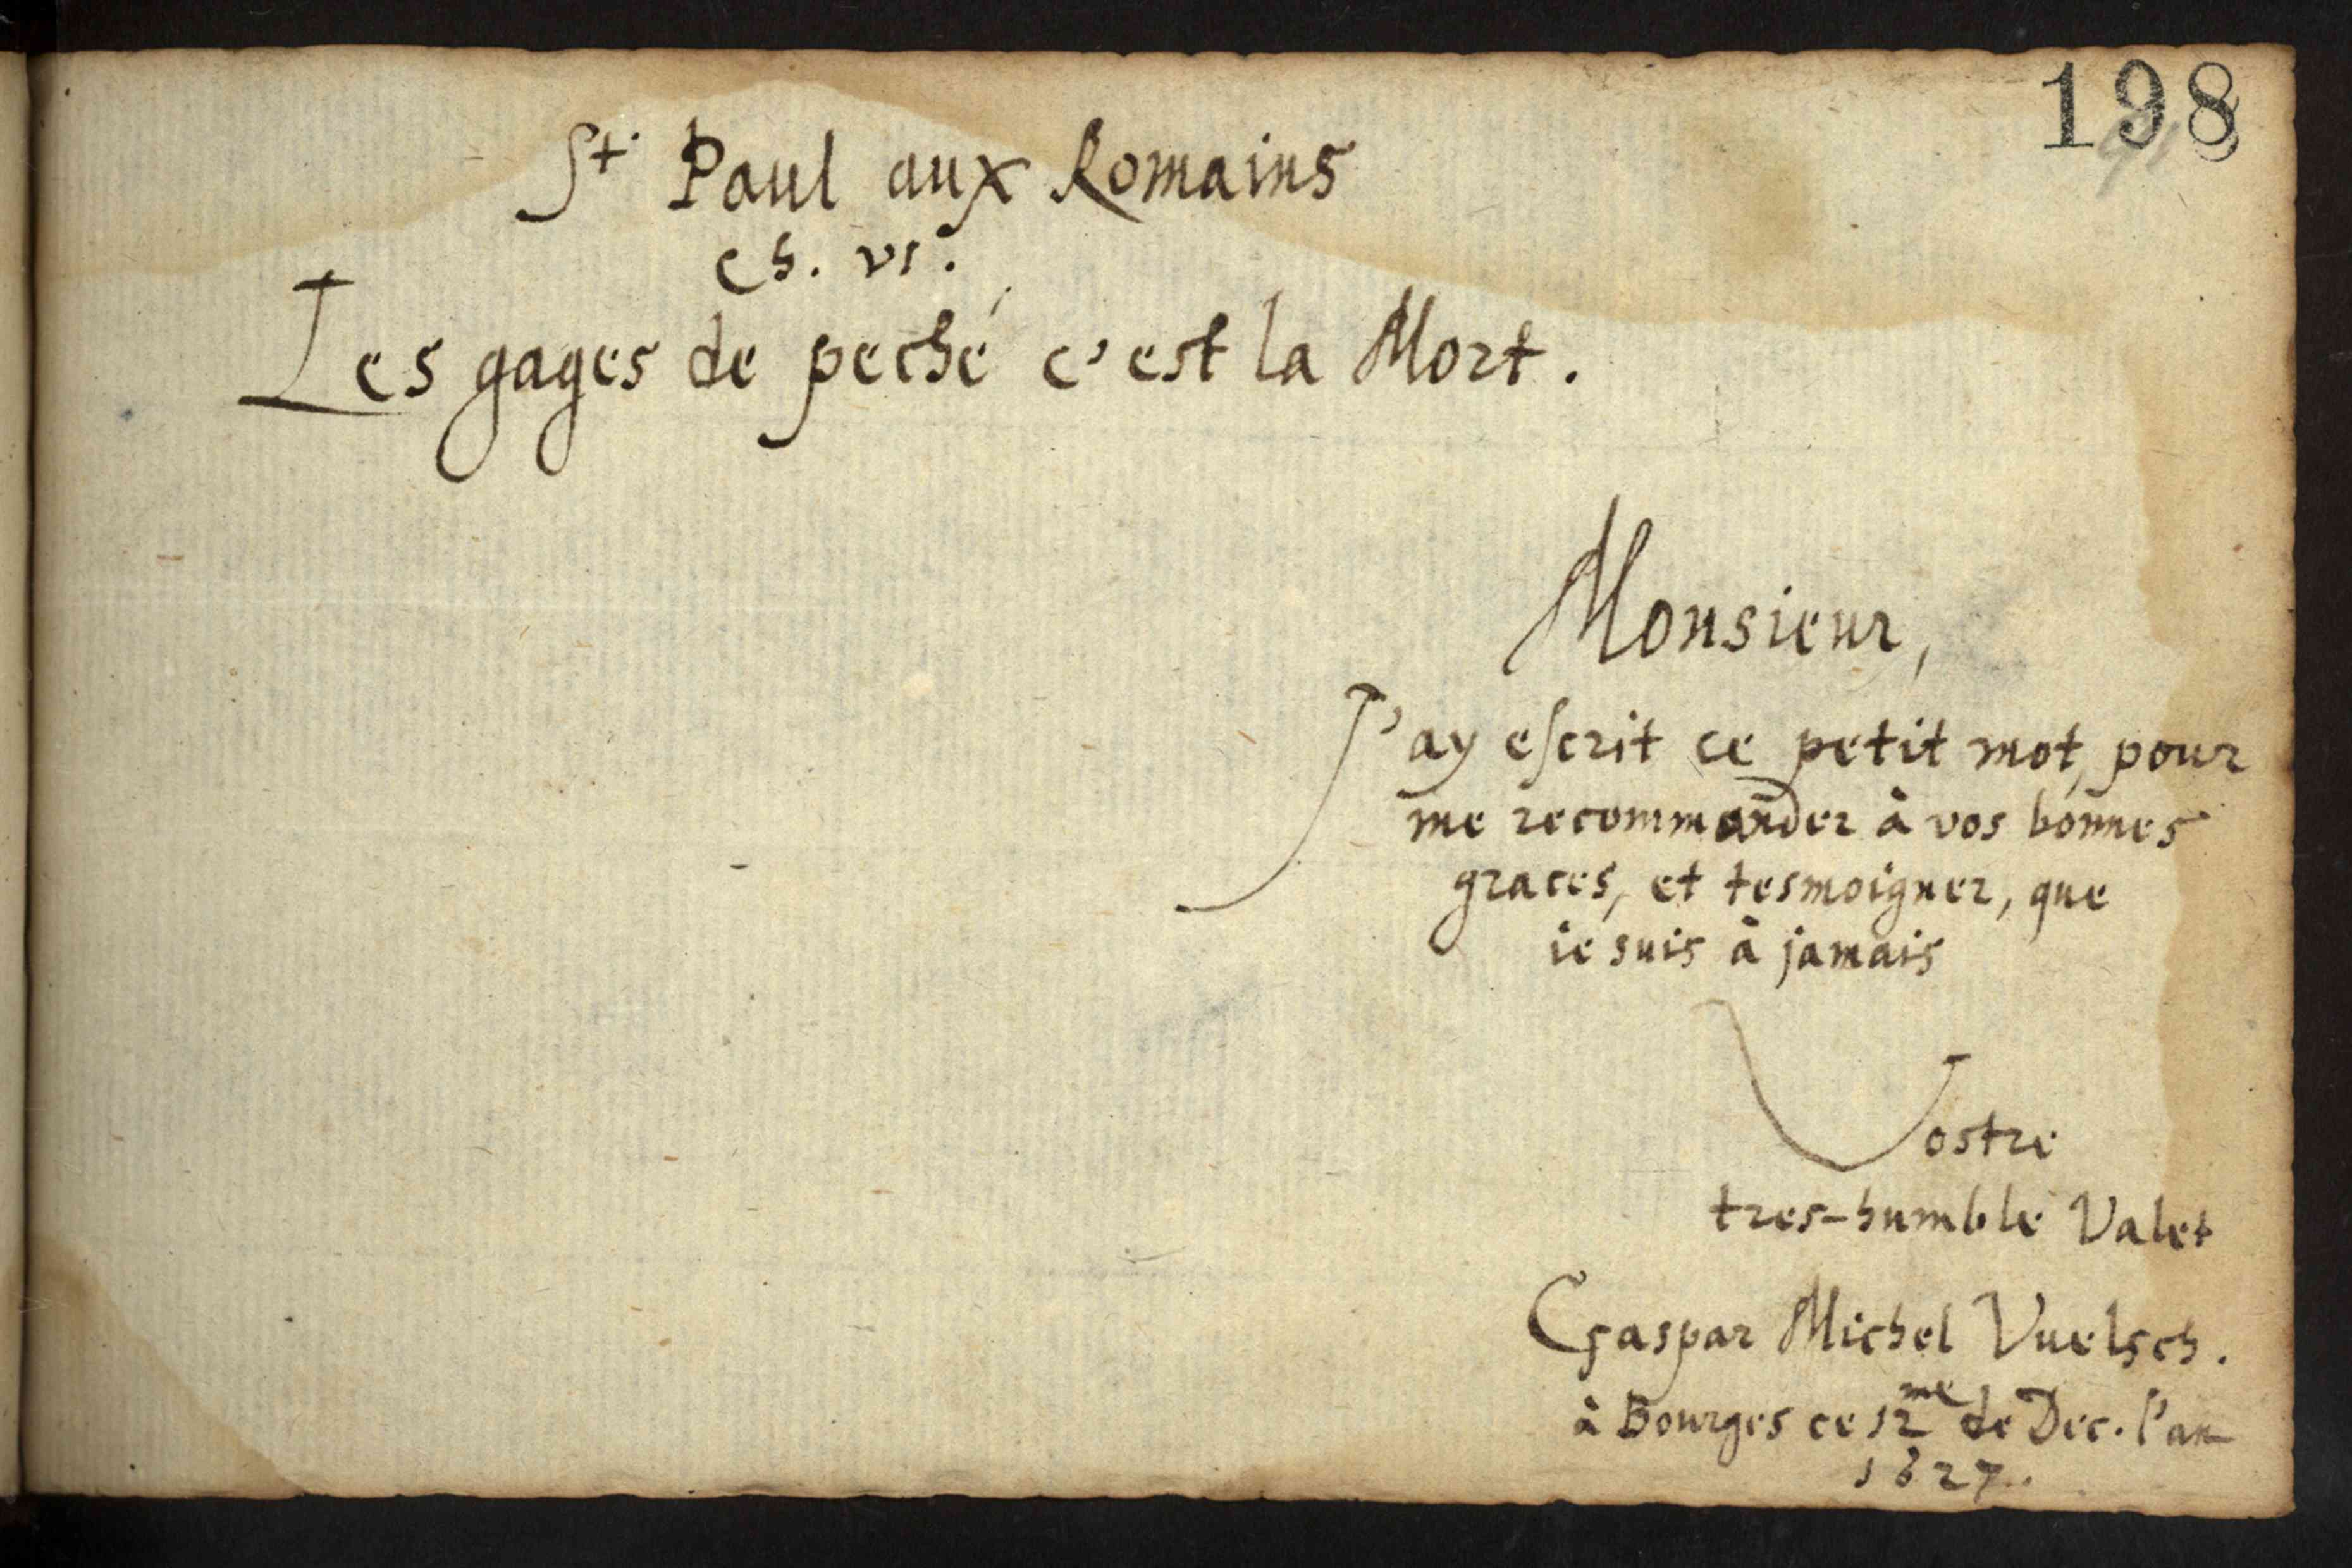 198
St. Paul aux Romains
Ch. vi.
Les gages de peché c'est la Mort.
Monsieur,
J'ay escrit ce petit mot, pour
me recommander à vos bonnes
graces, et tesmoigner, que
ie suis à jamais
Vostre
tres-humble Valet
Gaspar Michel Vuelsch.
à Bourges ce 12me de Dec. l'an
1627.